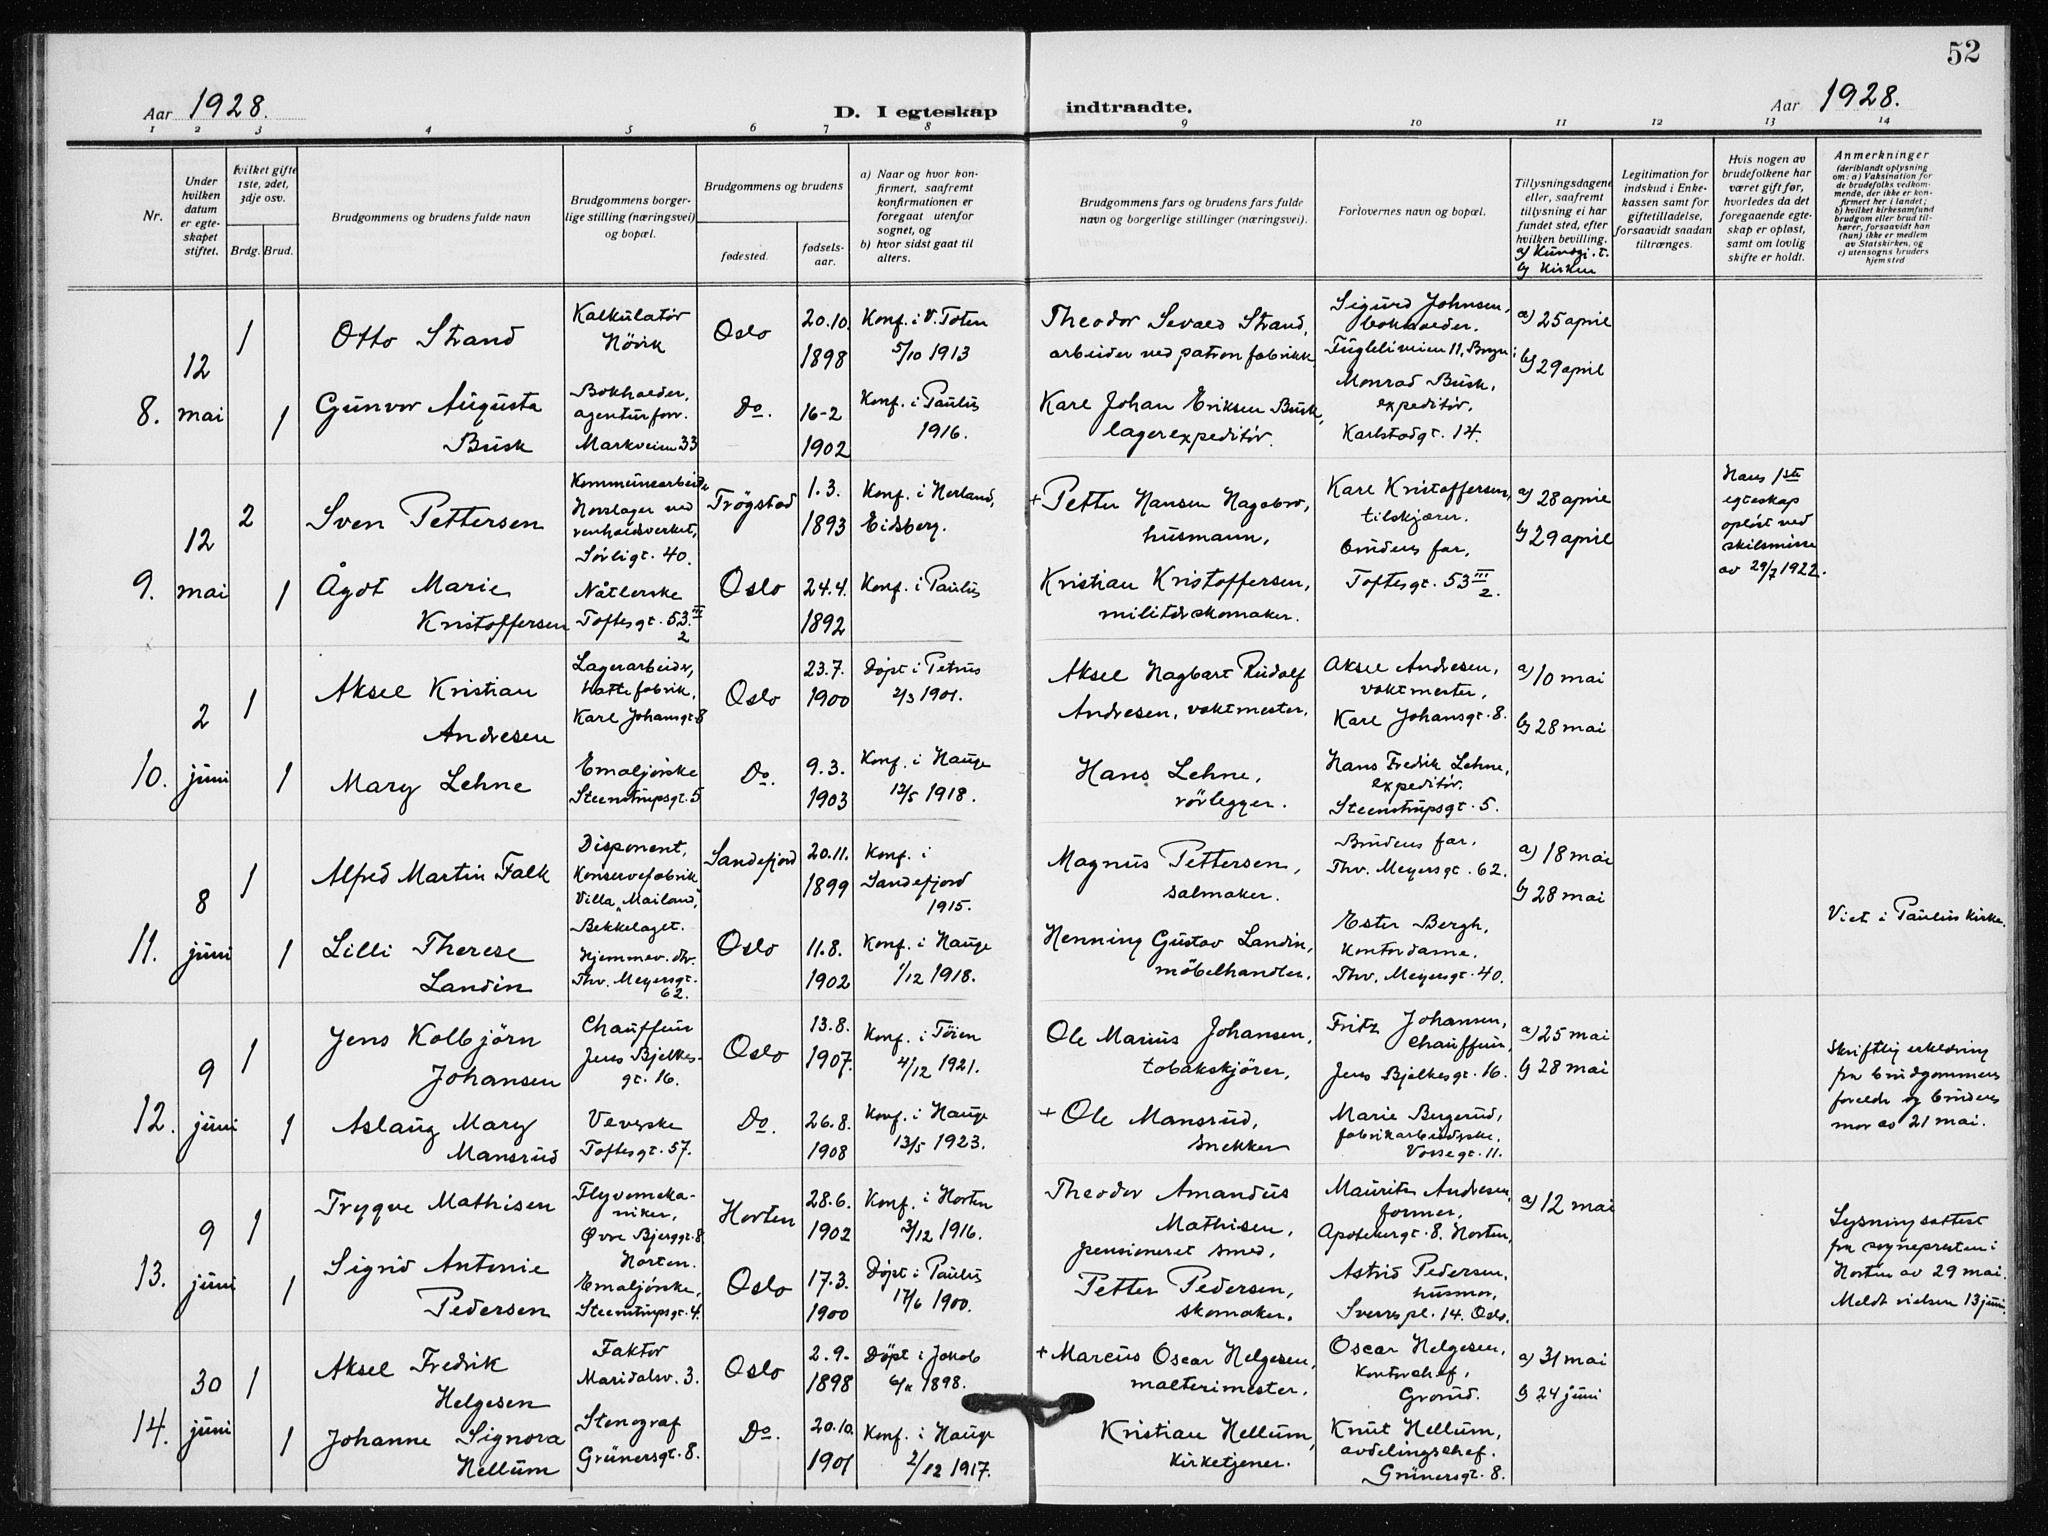 52
Aar 1928.
D. I egteskap indtraadte.
Aar 1928.
1 2 3 4 5 6 7 8 9 10 11 12 13 14
Nr.
Under
hvilken
datum
er egte-
skapet
stiftet.
Hvilket gifte
1ste, 2det,
3dje osv.
Brdg. Brud.
Brudgommens og brudens fulde navn
Brudgommens borger-
lige stilling (næringsvei)
og bopæl.
Brudgommens og brudens
fødested.
fødsels-
aar.
a) Naar og hvor kon-
firmert, saafremt
konfirmationen er
foregaat utenfor
sognet, og
b) hvor sidst gaat til
alters.
Brudgommens fars og brudens fars fulde
navn og borgerlige stillinger (næringsvei).
Forlovernes navn og bopæl.
Tillysningsdagene
eller, saafremt
tillysning ei har
fundet sted, efter
hvilken bevilling.
a) Kundgj. t.
b) Kirken
Legitimation for
indskud i Enke-
kassen samt for
giftetilladelse,
forsaavidt saadan
tiltrænges.
Hvis nogen av
brudefolkene har
været gift før,
hvorledes da det
foregaaende egte-
skap er opløst,
samt om lovlig
skifte er holdt.
Anmerkninger
(deriblandt oplysning
om: a) Vaksination for
de brudefolks vedkom-
mende, der ikke er kon-
firmert her i landet;
b) hvilket kirkesamfund
brudgom eller brud til-
hører, forsaavidt han
(hun) ikke er medlem
av Statskirken, og
c) utensogns bruders
hjemsted
8.
12
mai
1
Otto Strand
Kalkulatør
Høvik
Oslo
20.10.
1898
Konf. i V. Toten
5/10 1913
Theodor Sevald Strand,
arbeider ved patronfabrikk
Sigurd Johnsen,
bokholder.
Fugleliveien 11, Bryn
a) 25 april
b) 29 april
1
Gunvor Augusta
Busk
Bokholder,
agenturforr.
Markveien 33
Do.
16-2
1902
Konf. i Paulus
1916.
Karl Johan Eriksen Busk,
lagerexpeditør.
Monrad Busk,
expeditør.
Karlstadgt. 14.
9.
12
mai
2
Sven Pettersen
Kommunearbeider
Horslager ved
renholdsverket,
Sørligt. 40.
Trøgstad
1.3.
1893
Konf. i Herland,
Eidsberg.
+ Petter Hansen Hagabro,
husmann,
Karl Kristoffersen,
tilskjærer.
a) 28 april
b) 29 april
Hans 1ste
egteskap
opløst ved
skilsmisse
av 29/7 1922.
1
Ågot Marie
Kristoffersen
Nåtlerske
Toftesgt. 53 III
2
Oslo
24.4.
1892
Konf. i Paulus
Kristian Kristoffersen,
militærskomaker.
Brudens far,
Toftesgt. 53 III
2.
10.
2
juni
1
Aksel Kristian
Andresen
Lagerarbeider,
hattefabrik,
Karl Johansgt. 8
Oslo
23.7.
1900
Døpt i Petrus
2/3 1901.
Aksel Hagbart Rudolf
Andresen, vaktmester,
Aksel Andresen,
vaktmester,
Karl Johansgt. 8.
a) 10 mai
b) 28 mai
1
Mary Lehne
Emaljørske
Steenstrupsgt. 5
Do.
9.3.
1903
Konf. i Hauge
12/5 1918.
Hans Lehne,
rørlegger.
Hans Fredrik Lehne,
expeditør.
Steenstrupsgt. 5.
11.
8
juni
1
Alfred Martin Falk
Disponent,
Konservefabrik
Villa „Mailand,"
Bekkelaget.
Sandefjord
20.11.
1899
Konf. i
Sandefjord
1915.
Magnus Pettersen,
salmaker.
Brudens far,
Thv. Meyersgt. 62.
a) 18 mai
b) 28 mai
Viet i Paulus kirke.
1
Lilli Therese
Landin
Hjemmev. dtr.
Thv. Meyersgt.
62.
Oslo
11.8.
1902
Konf. i Hauge
1/12 1918.
Henning Gustav Landin,
møbelhandler.
Ester Bergh,
kontordame.
Thv. Meyersgt. 40.
12.
9
juni
1
Jens Kolbjörn
Johansen
Chauffeur
Jens Bjelkes-
gt. 16.
Oslo
13.8.
1907.
Konf. i Tøien
4/12 1921.
Ole Marius Johansen,
tobakskjører,
Fritz Johansen,
Chauffeur,
Jens Bjelkesgt. 16.
a) 25 mai
b) 28 mai
Skriftlig erklæring
fra brudgommens
foreldr og brudens
mor av 21 mai.
1
Aslaug Mary
Mansrud
Veverske
Toftesgt. 57.
Do.
26.8.
1908
Konf. i Hauge
13/5 1923.
+ Ole Mansrud,
snekker
Marie Bergerud,
fabrikarbeiderske,
Vossegt. 11.
13.
9
juni
1
Trygve Mathisen
Flyvemeka-
niker,
Øvre Bjerggt. 8
Horten.
Horten
28.6.
1902
Konf. i Horten
3/12 1916.
Theodor Amandus
Mathisen,
pensioneret smed,
Mauritz Andresen,
former,
Apotekergt. 8. Horten,
a) 12 mai
Lysningsattest
fra sognepresten i
Horten av 29 mai.
Meldt vielsen 13 juni.
1
Sigrid Antonie
Pedersen
Emaljørske,
Steenstrupsgt. 4.
Oslo
17.3.
1900
Døpt i Paulus
17/6 1900.
Petter Pedersen,
skomaker.
Astrid Pedersen,
husmor,
Sverrespl. 14. Oslo.
14.
30
juni
1
Aksel Fredrik
Helgesen
Faktor
Maridalsv. 3.
Oslo
2.9.
1898
Døpt i Jakob
1898.
+ Marcus Oscar Helgesen,
malterimester.
Oscar Helgesen,
kontorchef,
Grorud.
a) 31 mai
b) 24 juni
1
Johanne Signora
Hellum
Stenograf
Grünersgt. 8.
Do.
20.10.
1901
Konf. i Hauge
2/12 1917.
Kristian Hellum,
kirketjener.
Knut Hellum,
avdelingschef.
Grünersgt. 8.